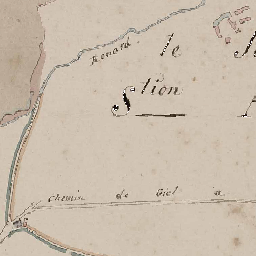 Renard
le
Stion
Chemin de Viel a